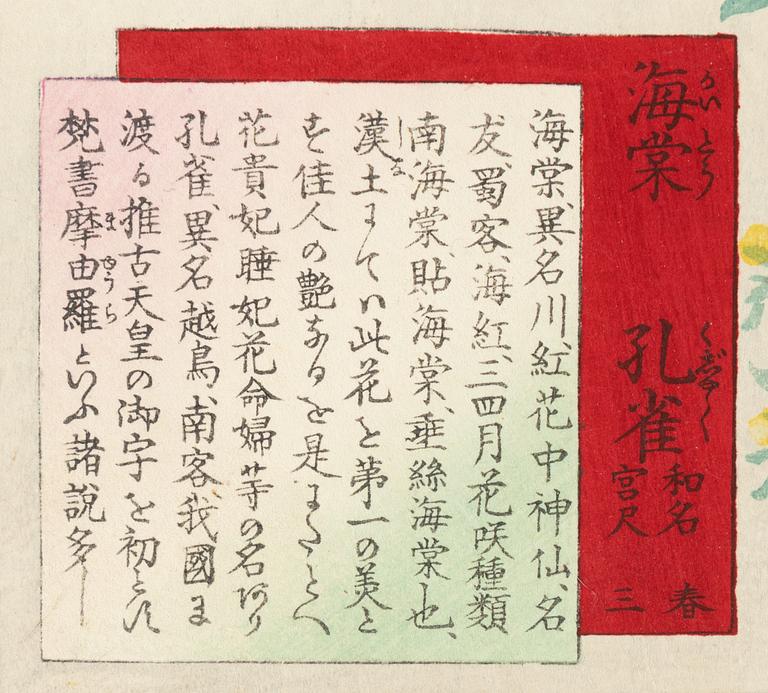 海棠 かいどう
孔雀 くじやく
和名
宮尺
春
三
海棠異名川紅花中神仙、名
友、蜀客、海紅、三四月花咲種類
南海棠、貼海棠、垂絲海棠也、
漢土にてハ此花を第一の美と
す佳人の艶なるを是にたとへ
花貴妃睡妃花命婦等の名あり
孔雀異名越鳥、南客我國に
渡る推古天皇の御字を初とす
梵書摩由羅といふ諸説多し